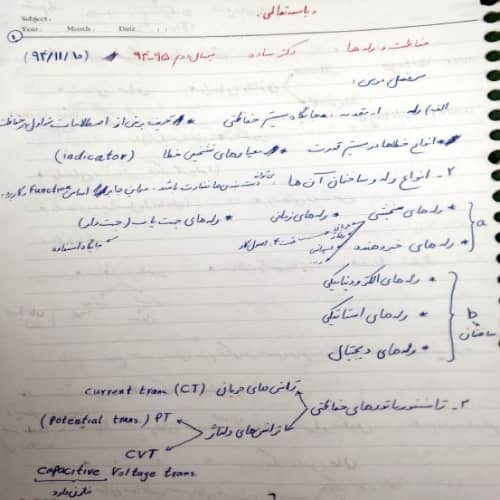 Subject:
Year. Month. Date.
۱
حفاظت و رله ها دکتر ساده نیمسال دوم ۹۵-۹۴ (۹۴/۱۱/۱۰)
سرفصل درس:
الف) رله ۱- مقدمه: * جایگاه سیستم حفاظتی * تعریف برخی از اصطلاحات متداول در حفاظت
* انواع خطاها در سیستم قدرت * معیارهای تشخیص خطا (indicator)
۲- انواع رله و ساختمان آن ها: دسته بندی ها متفاوت باشد. اساس Function
a
* رله های سنجشی * رله های زمانی * رله های جهت یاب (جهت دار)
* رله های خبر دهنده
b ساختمان
* رله های الکترودینامیکی
* رله های استاتیکی
* رله های دیجیتال
۳- ترانسفورماتورهای حفاظتی
ترانس های جریان current trans. (CT)
ترانس های ولتاژ
(Potential trans.) PT
CVT
Capacitive Voltage trans.
خازن دارد